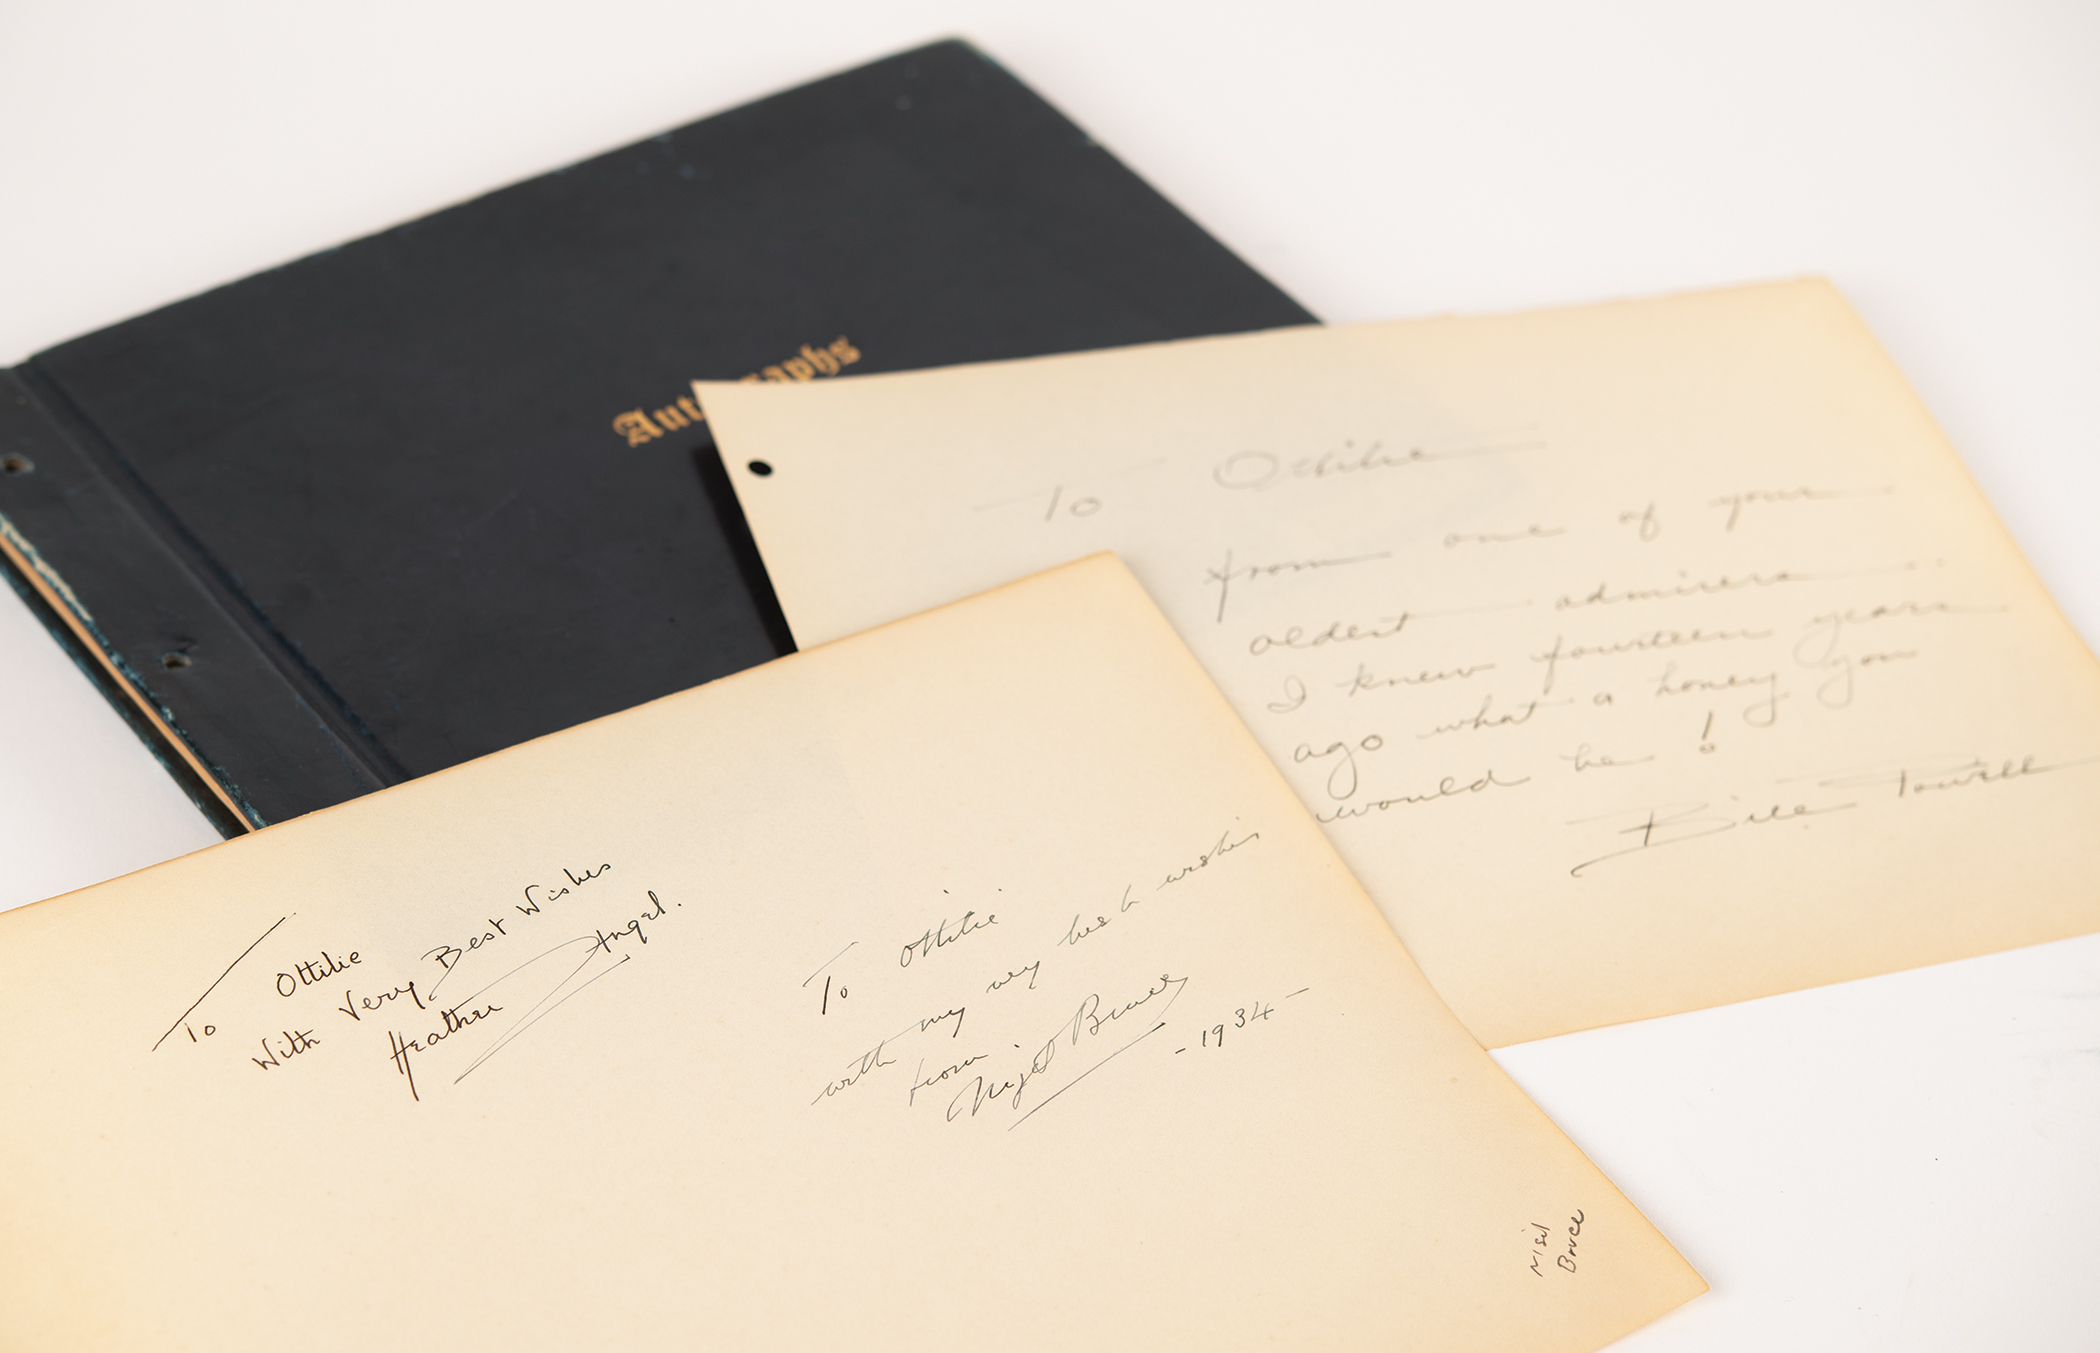 Autographs
To Ottilie
from one of your
oldest admirers
I knew fourteen years
ago what a honey you
would be!
Bill Powell
To Ottilie
With Very Best Wishes
Heather Angel.
To Ottilie
with my very best wishes
from
Nigel Bruce
-1934-
Nigel
Bruce